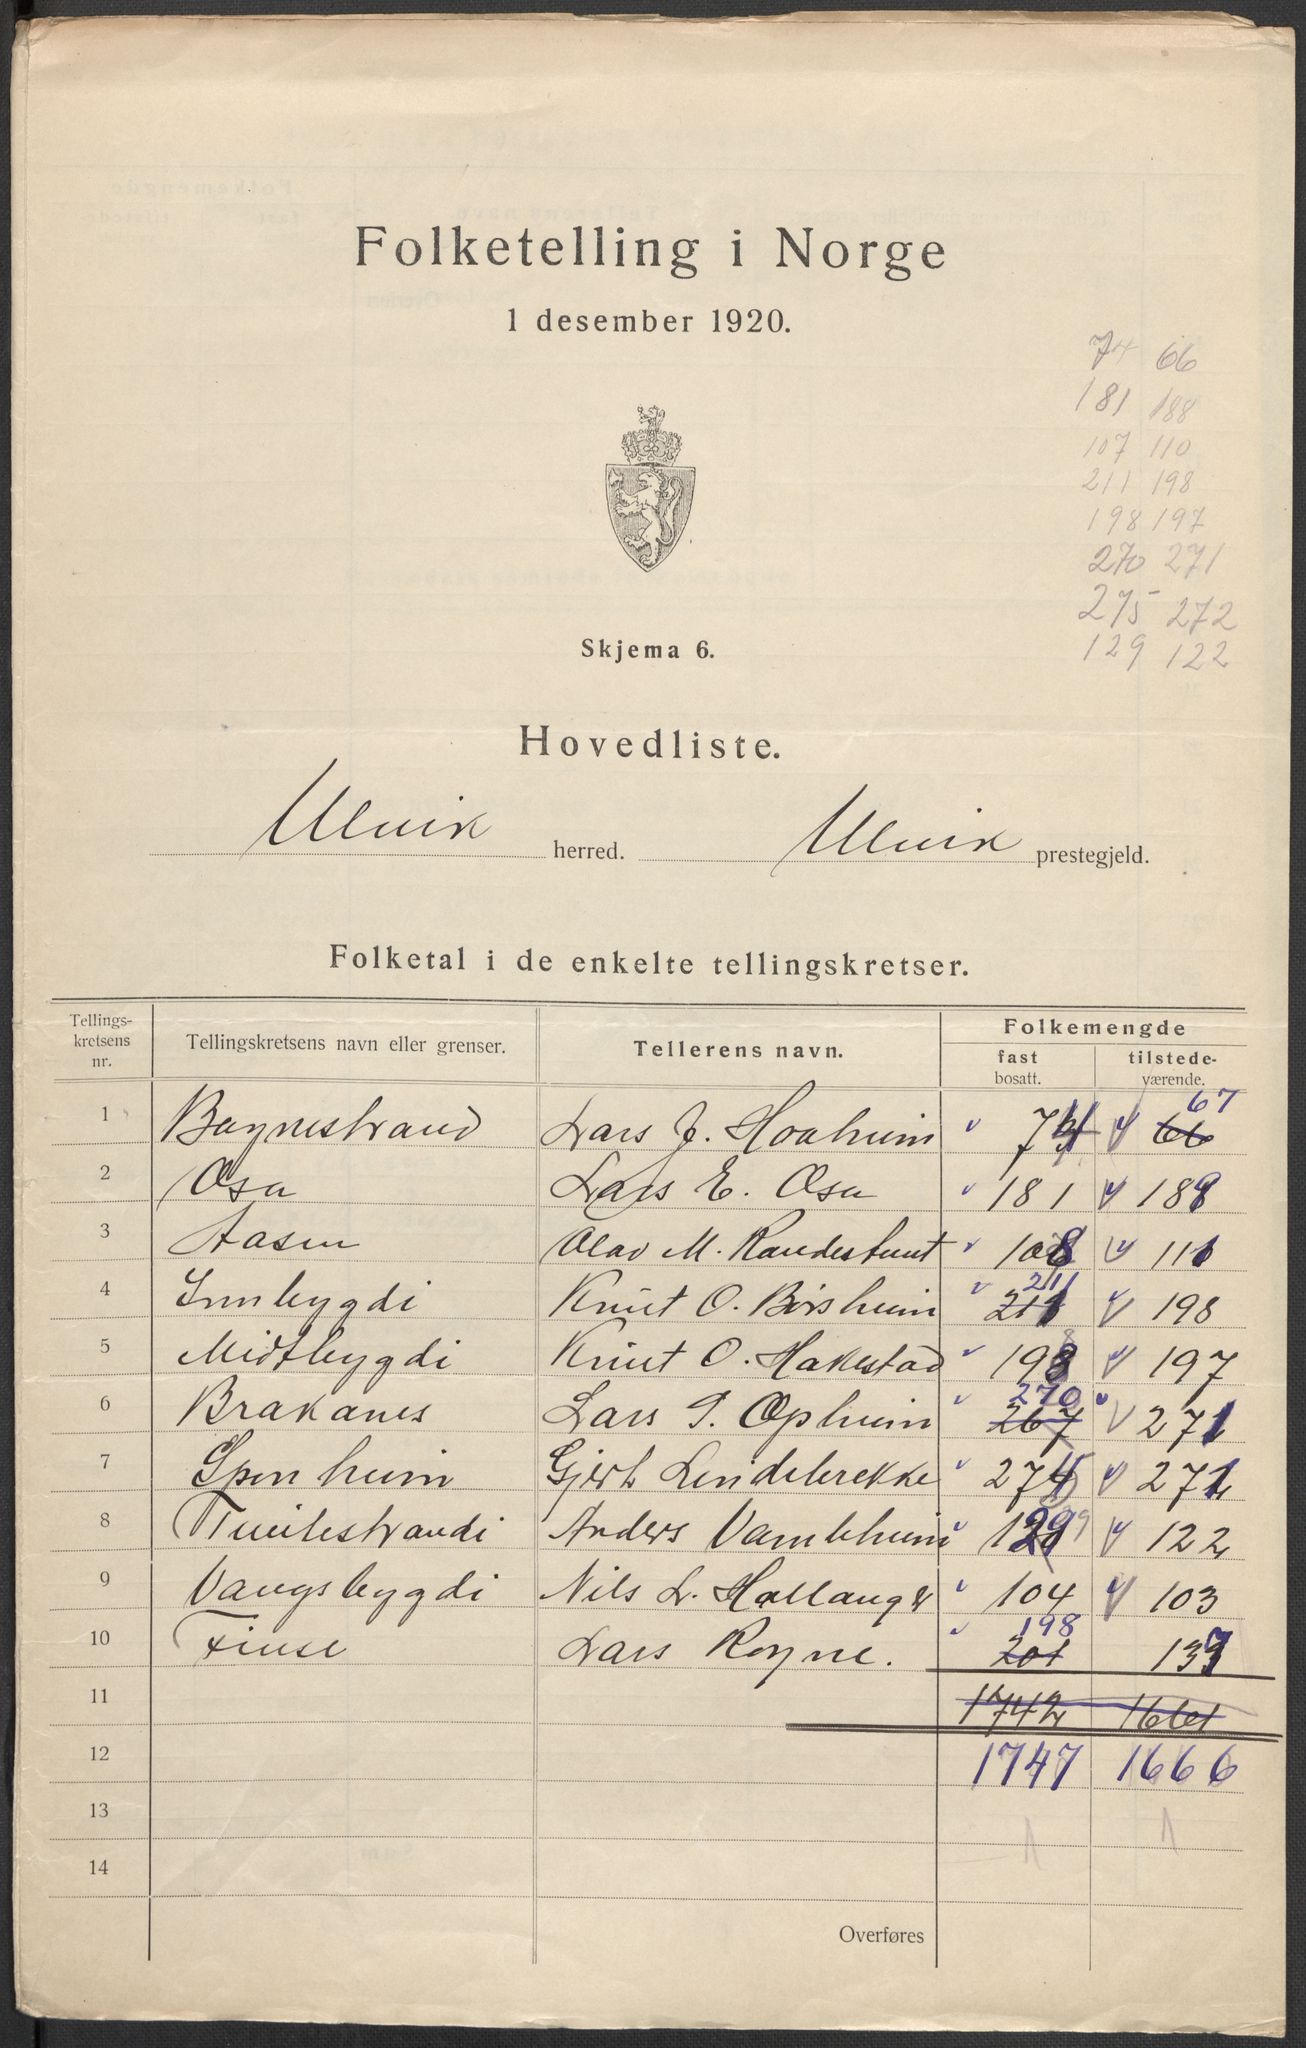 Folketelling i Norge
1 desember 1920.
74 66
181 188
107 110
211 198
198 197
270 271
275 272
129 122
Skjema 6.
Hovedliste.
Ulvik herred. Ulvik prestegjeld.
Folketal i de enkelte tellingskretser.
Tellings-kretsens nr. Tellingskretsens navn eller grenser. Tellerens navn. Folkemengde
fast bosatt. tilstede-værende.
67
1 Bagnestrand Lars J. Hoaheim 74 66
2 Osa Lars E. Osa 181 188
3 Aasen Olav M. Randestunt 108 111
211
4 Innbygdi Knut O. Birsheim 198
5 Midtbygdi Knut O. Hakestad 198 197
270
6 Brakanes Lars P. Opheim 267 271
7 Spenheim Gjert Lindebrekke 274 271
8 Tveitestrandi Anders Vambheim 129 122
9 Vangsbygdi Nils L. Hallanger 104 103
198
10 Finse Lars Royne. 201 137
11 1742 1661
12 1747 1666
13
14
Overføres